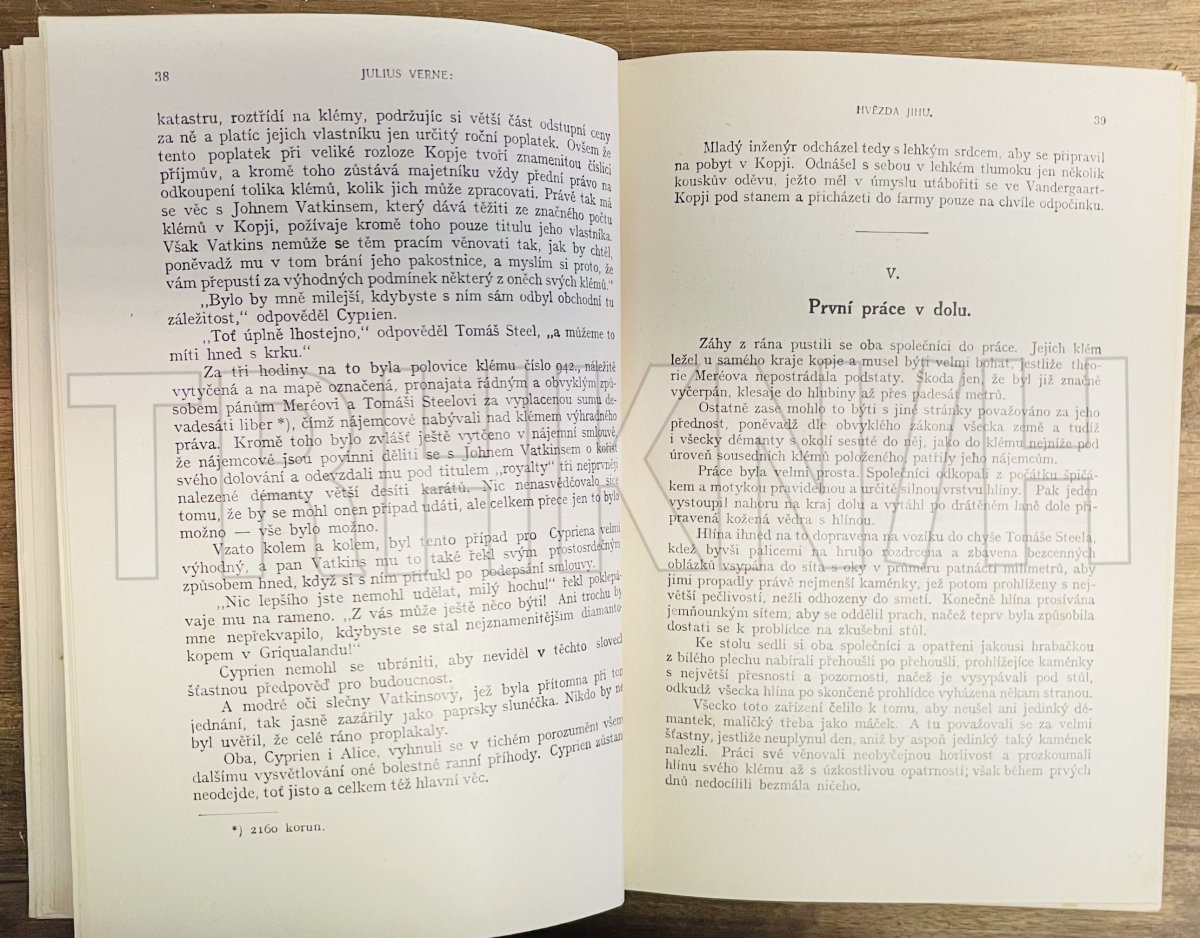 38
JULIUS VERNE:
katastru, roztřídí na klémy, podržujíc si větší část odstupní ceny
za ně a platíc jejich vlastníku jen určitý roční poplatek. Ovšem že
tento poplatek při veliké rozloze Kopje tvoří znamenitou číslici
příjmův, a kromě toho zůstává majetníku vždy přední právo na
odkoupení tolika klémů, kolik jich může zpracovati. Právě tak má
se věc s Johnem Vatkinsem, který dává těžiti ze značného počtu
klémů v Kopji, požívaje kromě toho pouze titulu jeho vlastníka.
Však Vatkins nemůže se těm pracím věnovati tak, jak by chtěl,
poněvadž mu v tom brání jeho pakostnice, a myslím si proto, že
vám přepustí za výhodných podmínek některý z oněch svých klémů.“
„Bylo by mně milejší, kdybyste s ním sám odbyl obchodní tu
záležitost,“ odpověděl Cyprien.
„Toť úplně lhostejno,“ odpověděl Tomáš Steel, „a můžeme to
míti hned s krku.“
Za tři hodiny na to byla polovice klému číslo 942., náležitě
vytyčená a na mapě označená, pronajata řádným a obvyklým způ-
sobem pánům Meréovi a Tomáši Steelovi za vyplacenou sumu de-
vadesáti liber *), čímž nájemcové nabývali nad klémem výhradného
práva. Kromě toho bylo zvlášť ještě vytčeno v nájemní smlouvě,
že nájemcové jsou povinni děliti se s Johnem Vatkinsem o kořist
svého dolování a odevzdali mu pod titulem „royalty“ tři nejprvněji
nalezené démanty větší desíti karátů. Nic nenasvědčovalo sice
tomu, že by se mohl onen případ udáti, ale celkem přece jen to bylo
možno — vše bylo možno.
Vzato kolem a kolem, byl tento případ pro Cypriena velmi
výhodný, a pan Vatkins mu to také řekl svým prostosrdečným
způsobem hned, když si s ním přiťukl po podepsání smlouvy.
„Nic lepšího jste nemohl udělat, milý hochu!“ řekl poklepá-
vaje mu na rameno. „Z vás může ještě něco býti! Ani trochu by
mne nepřekvapilo, kdybyste se stal nejznamenitějším diamanto-
kopem v Griqualandu!“
Cyprien nemohl se ubrániti, aby neviděl v těchto slovech
šťastnou předpověď pro budoucnost.
A modré oči slečny Vatkinsovy, jež byla přítomna při tom
jednání, tak jasně zazářily jako paprsky slunéčka. Nikdo by ne
byl uvěřil, že celé ráno proplakaly.
Oba, Cyprien i Alice, vyhnuli se v tichém porozumění všem
dalšímu vysvětlování oné bolestné ranní příhody. Cyprien zůstan
neodejde, toť jisto a celkem též hlavní věc.
*) 2160 korun.
HVĚZDA JIHU.
39
Mladý inženýr odcházel tedy s lehkým srdcem, aby se připravil
na pobyt v Kopji. Odnášel s sebou v lehkém tlumoku jen několik
kouskův oděvu, ježto měl v úmyslu utábořiti se ve Vandergaart-
Kopji pod stanem a přicházeti do farmy pouze na chvíle odpočinku.
V.
První práce v dolu.
Záhy z rána pustili se oba společníci do práce. Jejich klém
ležel u samého kraje kopje a musel býti velmi bohat, jestliže theo-
rie Meréova nepostrádala podstaty. Škoda jen, že byl již značně
vyčerpán, klesaje do hlubiny až přes padesát metrů.
Ostatně zase mohlo to býti s jiné stránky považováno za jeho
přednost, poněvadž dle obvyklého zákona všecka země a tudíž
i všecky démanty s okolí sesuté do něj, jako do klému nejníže pod
úroveň sousedních klémů položeného patřily jeho nájemcům.
Práce byla velmi prosta. Společníci odkopali z počátku špičá-
kem a motykou pravidelnou a určitě silnou vrstvu hlíny. Pak jeden
vystoupil nahoru na kraj dolu a vytáhl po drátěném laně dole při-
pravená kožená vědra s hlínou.
Hlína ihned na to dopravena na vozíku do chyše Tomáše Steela,
kdež byvši palicemi na hrubo rozdrcena a zbavena bezcenných
oblázků vsypána do síta s oky v průměru patnácti milimetrů, aby
jimi propadly právě nejmenší kaménky, jež potom prohlíženy s nej-
větší pečlivostí, nežli odhozeny do smetí. Konečně hlína prosívána
jemňounkým sítem, aby se oddělil prach, načež teprv byla způsobila
dostati se k problídce na zkušební stůl.
Ke stolu sedli si oba společníci a opatřeni jakousi hrabačkou
z bílého plechu nabírali přehoušli po přehoušli, prohlížejíce kaménky
s největší přesností a pozorností, načež je vysypávali pod stůl,
odkudž všecka hlína po skončené prohlídce vyházena někam stranou.
Všecko toto zařízení čelilo k tomu, aby neušel ani jedinký dé-
mantek, maličký třeba jako máček. A tu považovali se za velmi
šťastny, jestliže neuplynul den, aniž by aspoň jedinký taký kamének
nalezli. Práci své věnovali neobyčejnou horlivost a prozkoumali
hlínu svého klému až s úzkostlivou opatrností; však během prvých
dnů nedocílili bezmála ničeho.
TRHKNIH